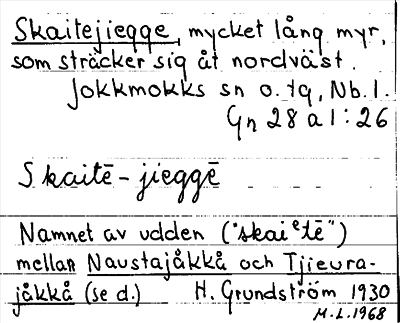 Skaitejiegge, mycket lång myr,
som sträcker sig åt nordväst.
Jokkmokks sn o. tg, Nb. l.
Gn 28 a 1 : 26
Skaitē - jieggē
Namnet av udden ("skaiᵉtē")
mellan Naustajåkkå och Tjieura-
jåkkå (se d.) H. Grundström 1930
M.L. 1968